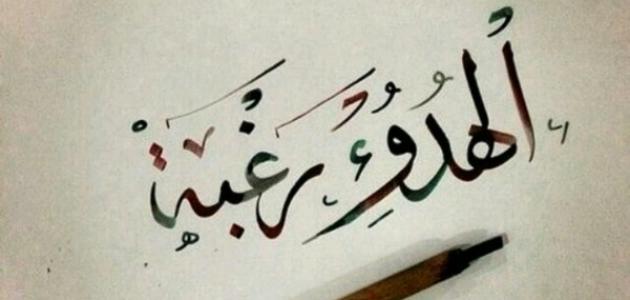 أُلهُدُوُءِ رَغْبَةْ